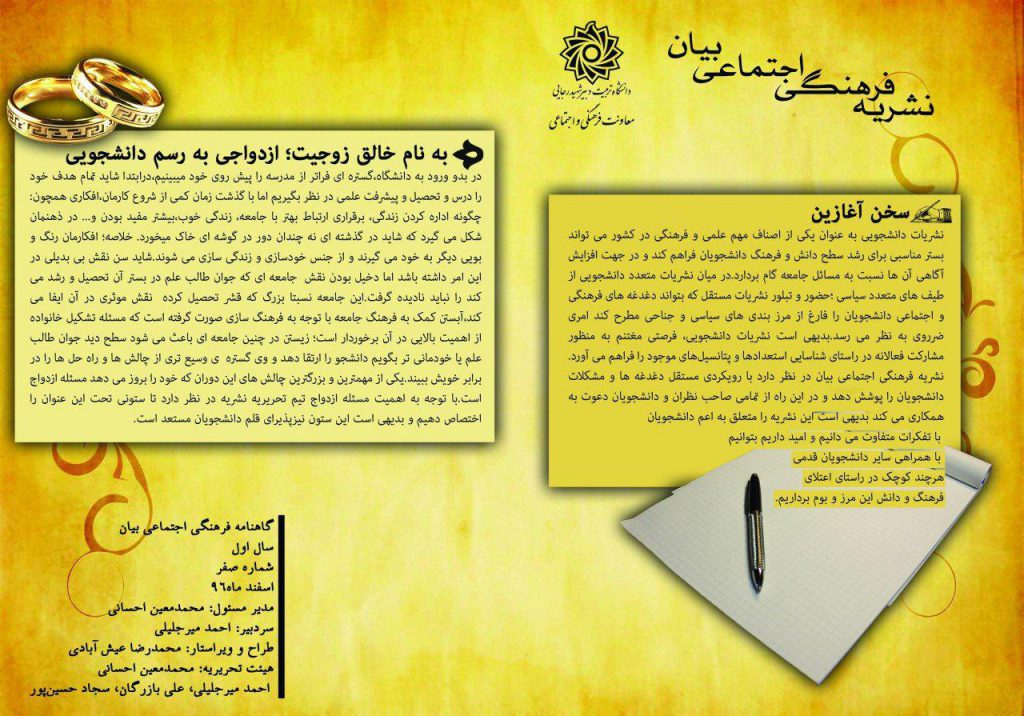 نشریه فرهنگی اجتماعی بیان
دانشگاه تربیت دبیر شهید رجایی
معاونت فرهنگی و اجتماعی
سخن آغازین
نشریات دانشجویی به عنوان یکی از اصناف مهم علمی و فرهنگی در کشور می تواند
بستر مناسبی برای رشد سطح دانش و فرهنگ دانشجویان فراهم کند و در جهت افزایش
آگاهی آن ها نسبت به مسائل جامعه گام بردارد.در میان نشریات متعدد دانشجویی از
طیف های متعدد سیاسی ؛حضور و تبلور نشریات مستقل که بتواند دغدغه های فرهنگی
و اجتماعی دانشجویان را فارغ از مرز بندی های سیاسی و جناحی مطرح کند امری
ضرروی به نظر می رسد.بدیهی است نشریات دانشجویی، فرصتی مغتنم به منظور
مشارکت فعالانه در راستای شناسایی استعدادها و پتانسیل‌های موجود را فراهم می آورد.
نشریه فرهنگی اجتماعی بیان در نظر دارد با رویکردی مستقل دغدغه ها و مشکلات
دانشجویان را پوشش دهد و در این راه از تمامی صاحب نظران و دانشجویان دعوت به
همکاری می کند بدیهی است این نشریه را متعلق به اعم دانشجویان
با تفکرات متفاوت می دانیم و امید داریم بتوانیم
با همراهی سایر دانشجویان قدمی
هرچند کوچک در راستای اعتلای
فرهنگ و دانش این مرز و بوم برداریم.
به نام خالق زوجیت؛ ازدواجی به رسم دانشجویی
در بدو ورود به دانشگاه،گستره ای فراتر از مدرسه را پیش روی خود میبینیم،درابتدا شاید تمام هدف خود
را درس و تحصیل و پیشرفت علمی در نظر بگیریم اما با گذشت زمان کمی از شروع کارمان،افکاری همچون:
چگونه اداره کردن زندگی، برقراری ارتباط بهتر با جامعه، زندگی خوب،بیشتر مفید بودن و... در ذهنمان
شکل می گیرد که شاید در گذشته ای نه چندان دور در گوشه ای خاک میخورد. خلاصه؛ افکارمان رنگ و
بویی دیگر به خود می گیرند و از جنس خودسازی و زندگی سازی می شوند.شاید سن نقش بی بدیلی در
این امر داشته باشد اما دخیل بودن نقش جامعه ای که جوان طالب علم در بستر آن تحصیل و رشد می
کند را نباید نادیده گرفت.این جامعه نسبتا بزرگ که قشر تحصیل کرده نقش موثری در آن ایفا می
کند،آبستن کمک به فرهنگ جامعه با توجه به فرهنگ سازی صورت گرفته است که مسئله تشکیل خانواده
از اهمیت بالایی در آن برخوردار است؛ زیستن در چنین جامعه ای باعث می شود سطح دید جوان طالب
علم یا خودمانی تر بگویم دانشجو را ارتقا دهد و وی گستره ی وسیع تری از چالش ها و راه حل ها را در
برابر خویش ببیند.یکی از مهمترین و بزرگترین چالش های این دوران که خود را بروز می دهد مسئله ازدواج
است.با توجه به اهمیت مسئله ازدواج تیم تحریریه نشریه در نظر دارد تا ستونی تحت این عنوان را
اختصاص دهیم و بدیهی است این ستون نیزپذیرای قلم دانشجویان مستعد است.
گاهنامه فرهنگی اجتماعی بیان
سال اول
شماره صفر
اسفند ماه۹۶
مدیر مسئول: محمدمعین احسانی
سردبیر: احمد میرجلیلی
طراح و ویراستار: محمدرضا عیش آبادی
هیئت تحریریه: محمدمعین احسانی
احمد میرجلیلی، علی بازرگان، سجاد حسین‌پور